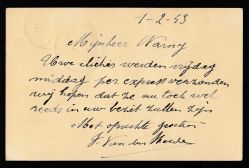 1-2-53
Mijnheer Warny
Uwe cliches werden vrijdag
middag per express verzonden
wij hopen dat ze nu toch wel
reeds in uw bezit zullen zijn
Met oprechte groeten
J. Van der